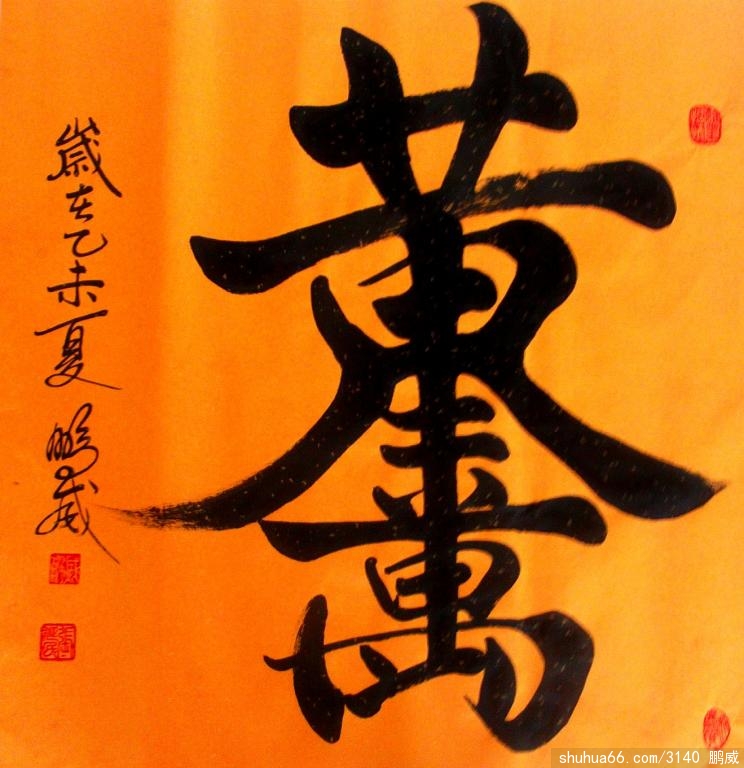 黃金萬兩
歲在乙未夏 鵬威
shuhua66.com/3140 鹏威